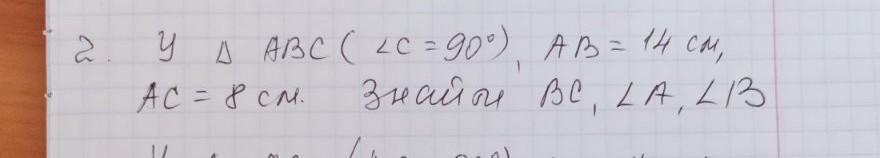 2. У Δ ABC ( ∠C = 90°), AB = 14 см,
AC = 8 см. Знайти BC, ∠A, ∠B